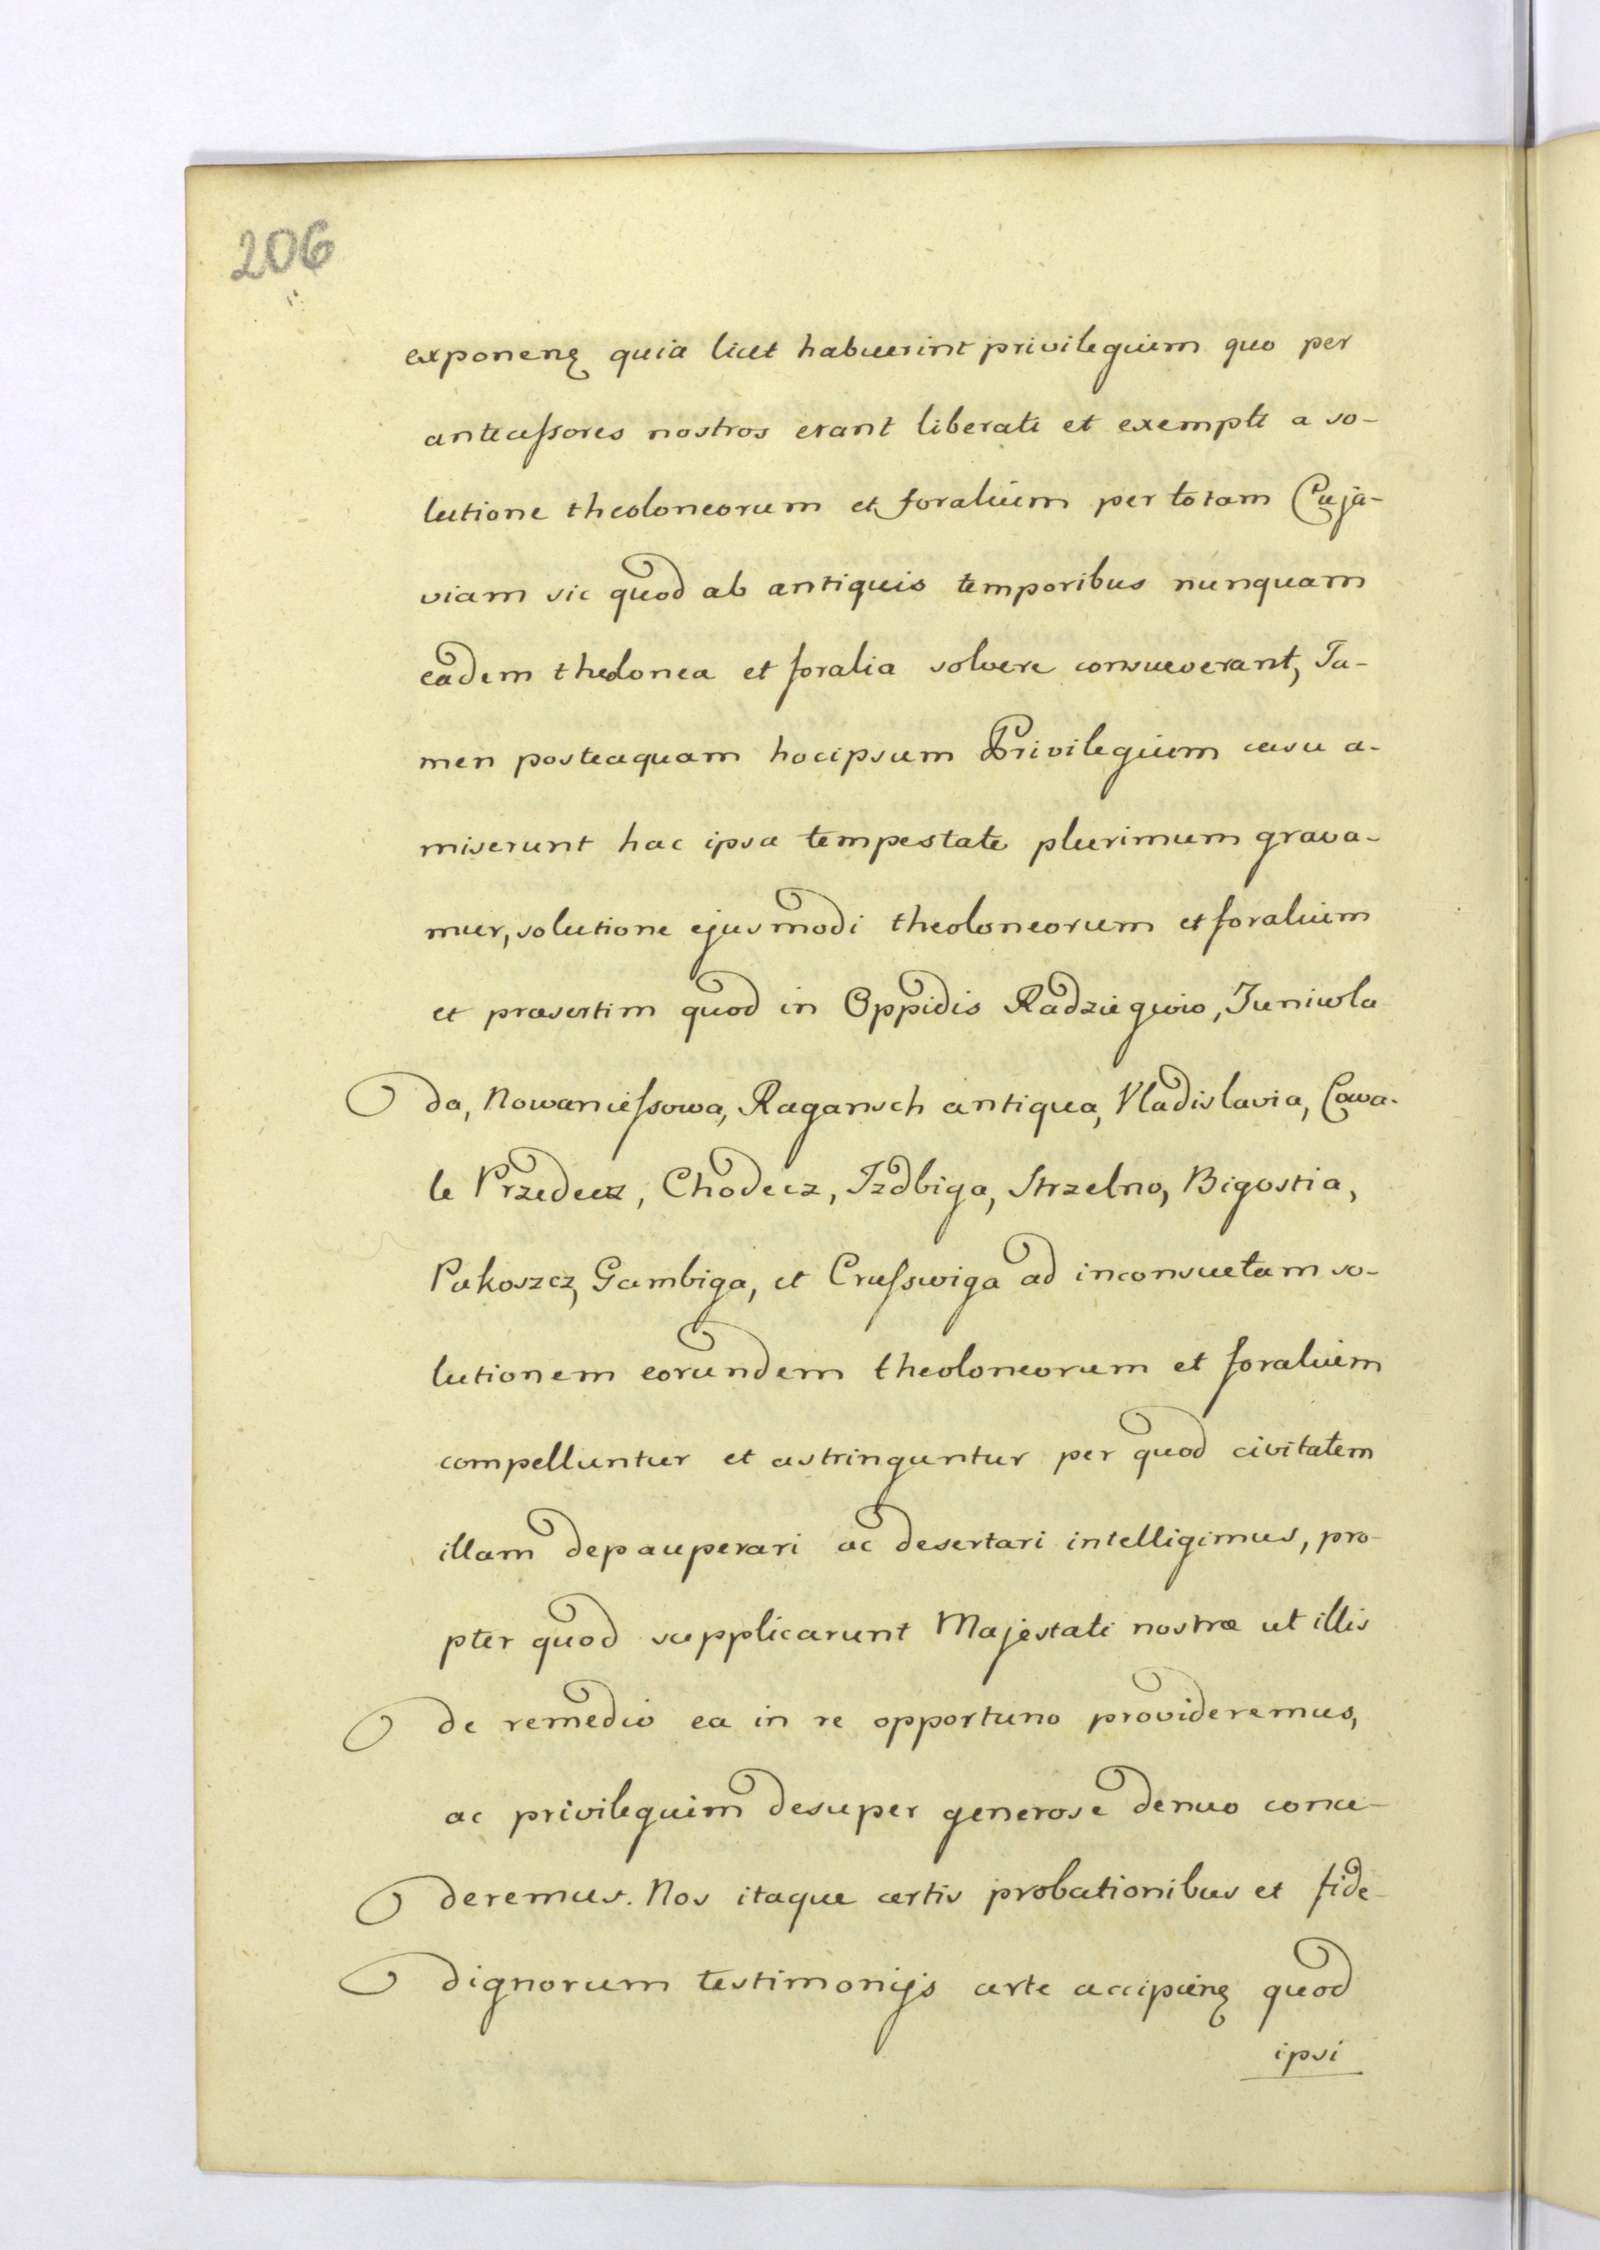 206
exponenꝫ quia licet habuerint privilegium quo per
antecessores nostros erant liberati et exempti a so-
lutione theoloneorum et foralium per totam Cuja-
viam sic quod ab antiquis temporibus nunquam
eadem thelonea et foralia solvere consueverant, Ta-
men posteaquam hocipsum Privilegium casu a-
miserunt hac ipsa tempestate plurimum grava-
mur, solutione ejusmodi theoloneorum et foralium
et præsertim quod in Oppidis Radziegwio, Juniwla
da, Nowaniessowa, Ragansch antiqua, Vladislavia, Cowa-
le Przedecz, Chodecz, Izdbiga, Strzelno, Bigostia,
Pakoszcz, Gambiga, et Crusswiga ad inconsuetam so-
lutionem eorundem theoloneorum et foralium
compelluntur et astringuntur per quod civitatem
illam depauperari ac desertari intelligimus, pro-
pter quod supplicarunt Majestati nostræ ut illis
de remedio ea in re opportuno provideremus,
ac privilegium desuper generose denuo conce-
deremus. Nos itaque certis probationibus et fide-
dignorum testimonijs certe accipienꝫ quod
ipsi